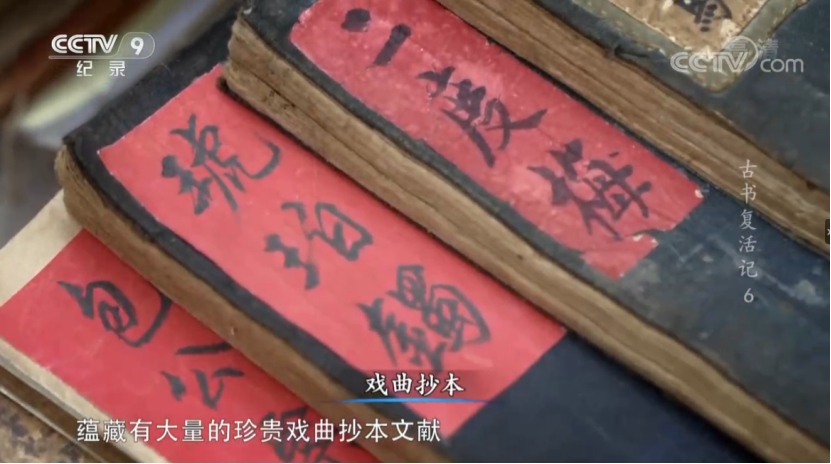 CCTV 9
纪录
高清
CCTV.com
二度梅
琥珀鐲
包公
古书复活记 6
戏曲抄本
蕴藏有大量的珍贵戏曲抄本文献